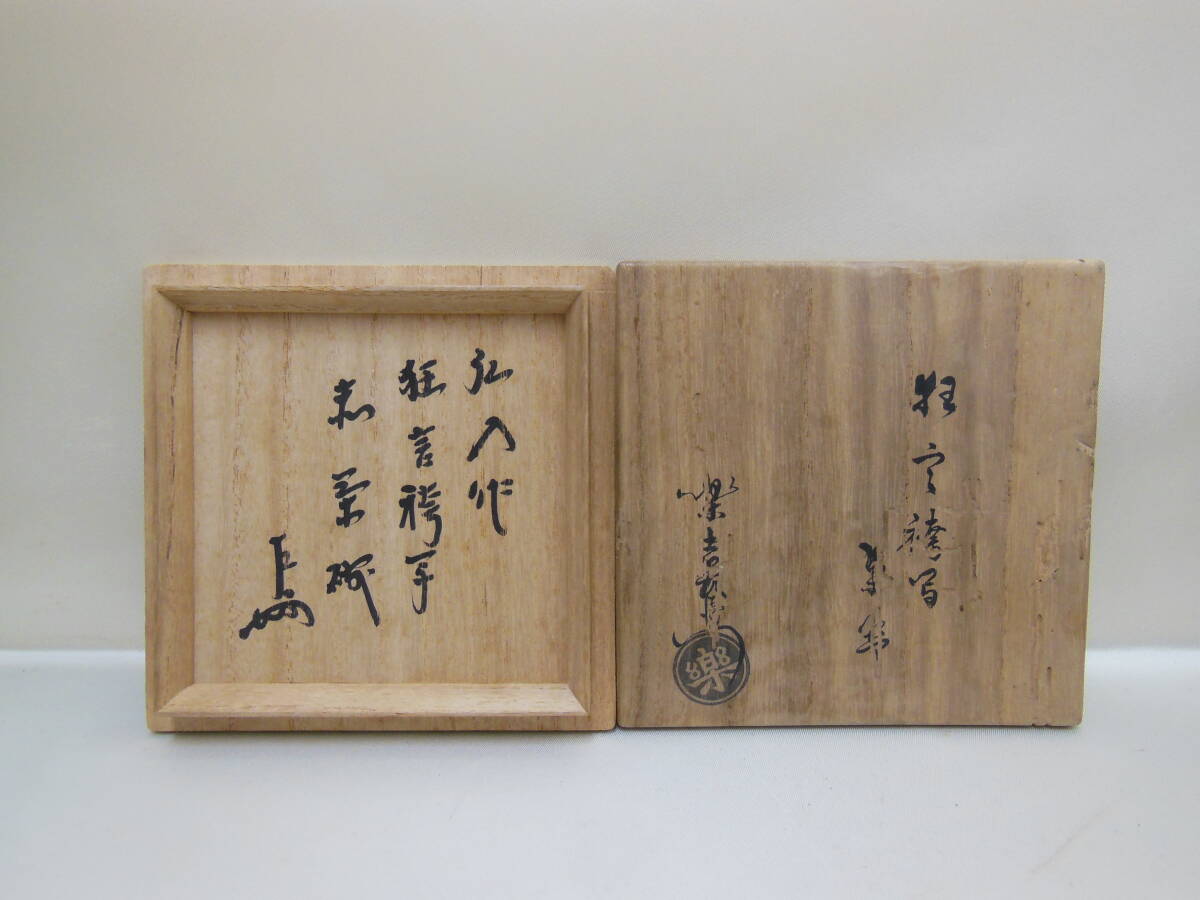 狂言袴写
茶碗
樂吉左衛門
樂
弘入作
狂言袴手
赤茶碗